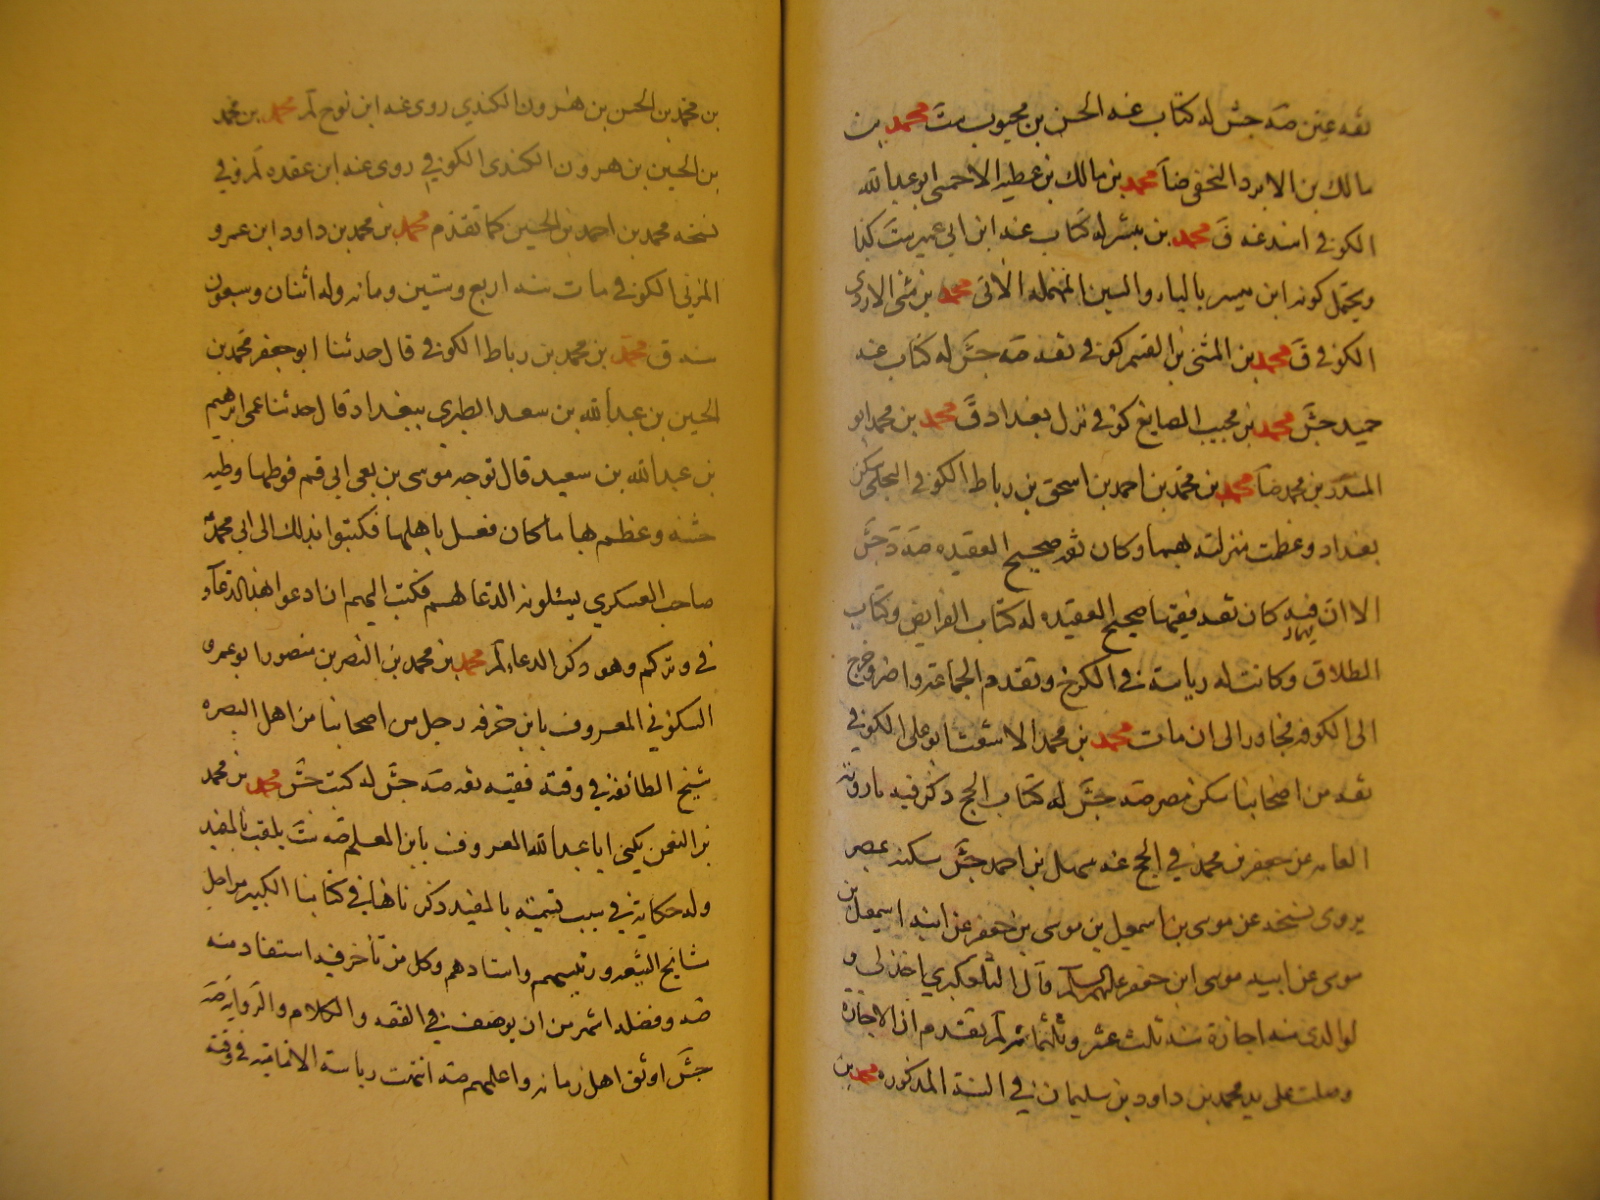 ثقه عين صه جش له كتاب عنه الحسن بن محبوب ست محمد بن
مالك بن الابرد النخعي ضا محمد بن مالك بن عطيه الاحمسي ابو عبدالله
الكوفي اسند عنه ق محمد بن مبشر له كتاب عنه ابن ابي عمير ست كذا
ويحتمل كونه ابن ميسر بالياء والسين المهمله الاتي محمد بن مثنى الازدي
الكوفي ق محمد بن المثنى بن القسم كوفي ثقه صه جش له كتاب عنه
حميد جش محمد بن مجيب الصايغ كوفي نزل بغداد ق محمد بن محمد ابو
بن محمد ضا محمد بن محمد بن احمد بن اسحق بن رباط الكوفي البجلي سكن
بغداد وعظمت منزلته بهما وكان ثقه صحيح العقيده صه د جش
الا ان فيه كان ثقه فقيها صحيح العقيده له كتاب الفرايض وكتاب
الطلاق وكانت له رياسة في الكرخ وتقدم الجماعة واضر وخرج
الى الكوفه مجاورا الى ان مات محمد بن محمد الاشعث ابو على الكوفي
ثقه من اصحابنا سكن مصر صه جش له كتاب الحج ذكر فيه ما روته
العامه عن جعفر بن محمد في الحج عنه سهل بن احمد جش سكنه بمصر
يروى نسخه عن موسى بن اسمعيل بن موسى بن جعفر عن ابيه اسمعيل بن
موسى عن ابيه موسى ابن جعفر عليهم السلام قال التلعكبري اخذ لي و
لوالدي منه اجازة سنه ثلث عشر وثلثمائة لم تقدم ان الاجازه
وصلت على يد محمد بن داود بن سليمان في السنة المذكوره محمد بن
بن محمد بن الحسن بن هرون الكندي روى عنه ابن نوح لم محمد بن محمد
بن الحسين بن هرون الكندى الكوفي روى عنه ابن عقده لم وفي
نسخه محمد بن احمد بن الحسين كما تقدم محمد بن محمد بن داود ابن عمرو
المزني الكوفي مات سنه اربع وستين ومائه وله اثنان وسبعون
سنه ق محمد بن محمد بن رباط الكوفي قال حدثنا ابو جعفر محمد بن
الحسين بن عبدالله بن سعد الطبري ببغداد قال حدثنا عمى ابرهيم
بن عبدالله بن سعيد قال توجه موسى بن بغى الى قم فوطئها وطئه
خشنه وعظم بها ما كان فعل باهلها فكتبوا بذلك الى ابي محمد
صاحب العسكري يسئلونه الدعا لهم فكتب اليهم ان ادعوا بهذا الدعاء
في وتركم وهو ذكر الدعاء لم محمد بن محمد بن النضر بن منصور ابو عمرو
السكوني المعروف بابن خرقه رجل من اصحابنا من اهل البصره
شيخ الطائفة في وقته فقيه ثقه صه جش له كتب جش محمد بن محمد
بن النعمن يكنى ابا عبدالله المعروف بابن المعلم صه ست يلقب بالمفيد
وله حكاية في سبب تسميته بالمفيد ذكرناها في كتابنا الكبير من اجل
مشايخ الشيعه ورئيسهم واستادهم وكل من تاخر فيه استفاد منه
صه وفضله اشهر من ان يوصف في الفقه والكلام والرواية صه
جش اوثق اهل زمانه واعلمهم صه انتهت رياسة الاماميه في وقته